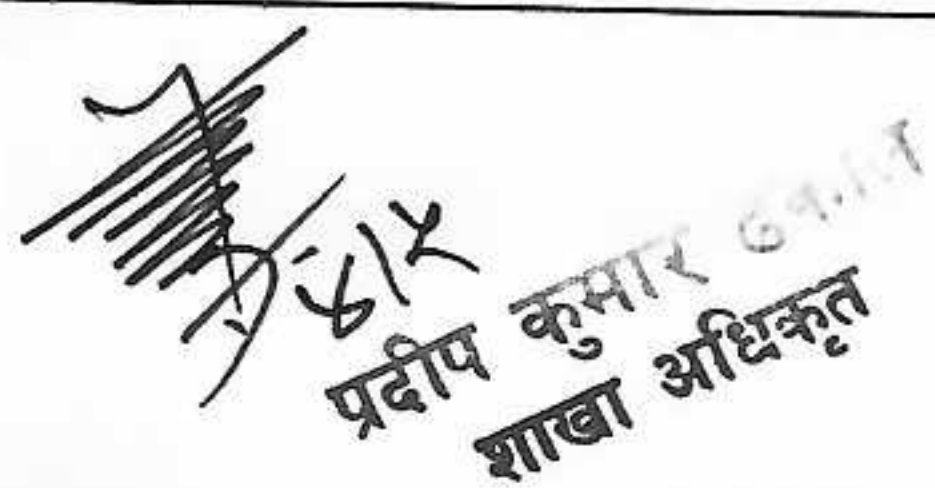 ४/२
प्रदीप कुमार
शाखा अधिकृत